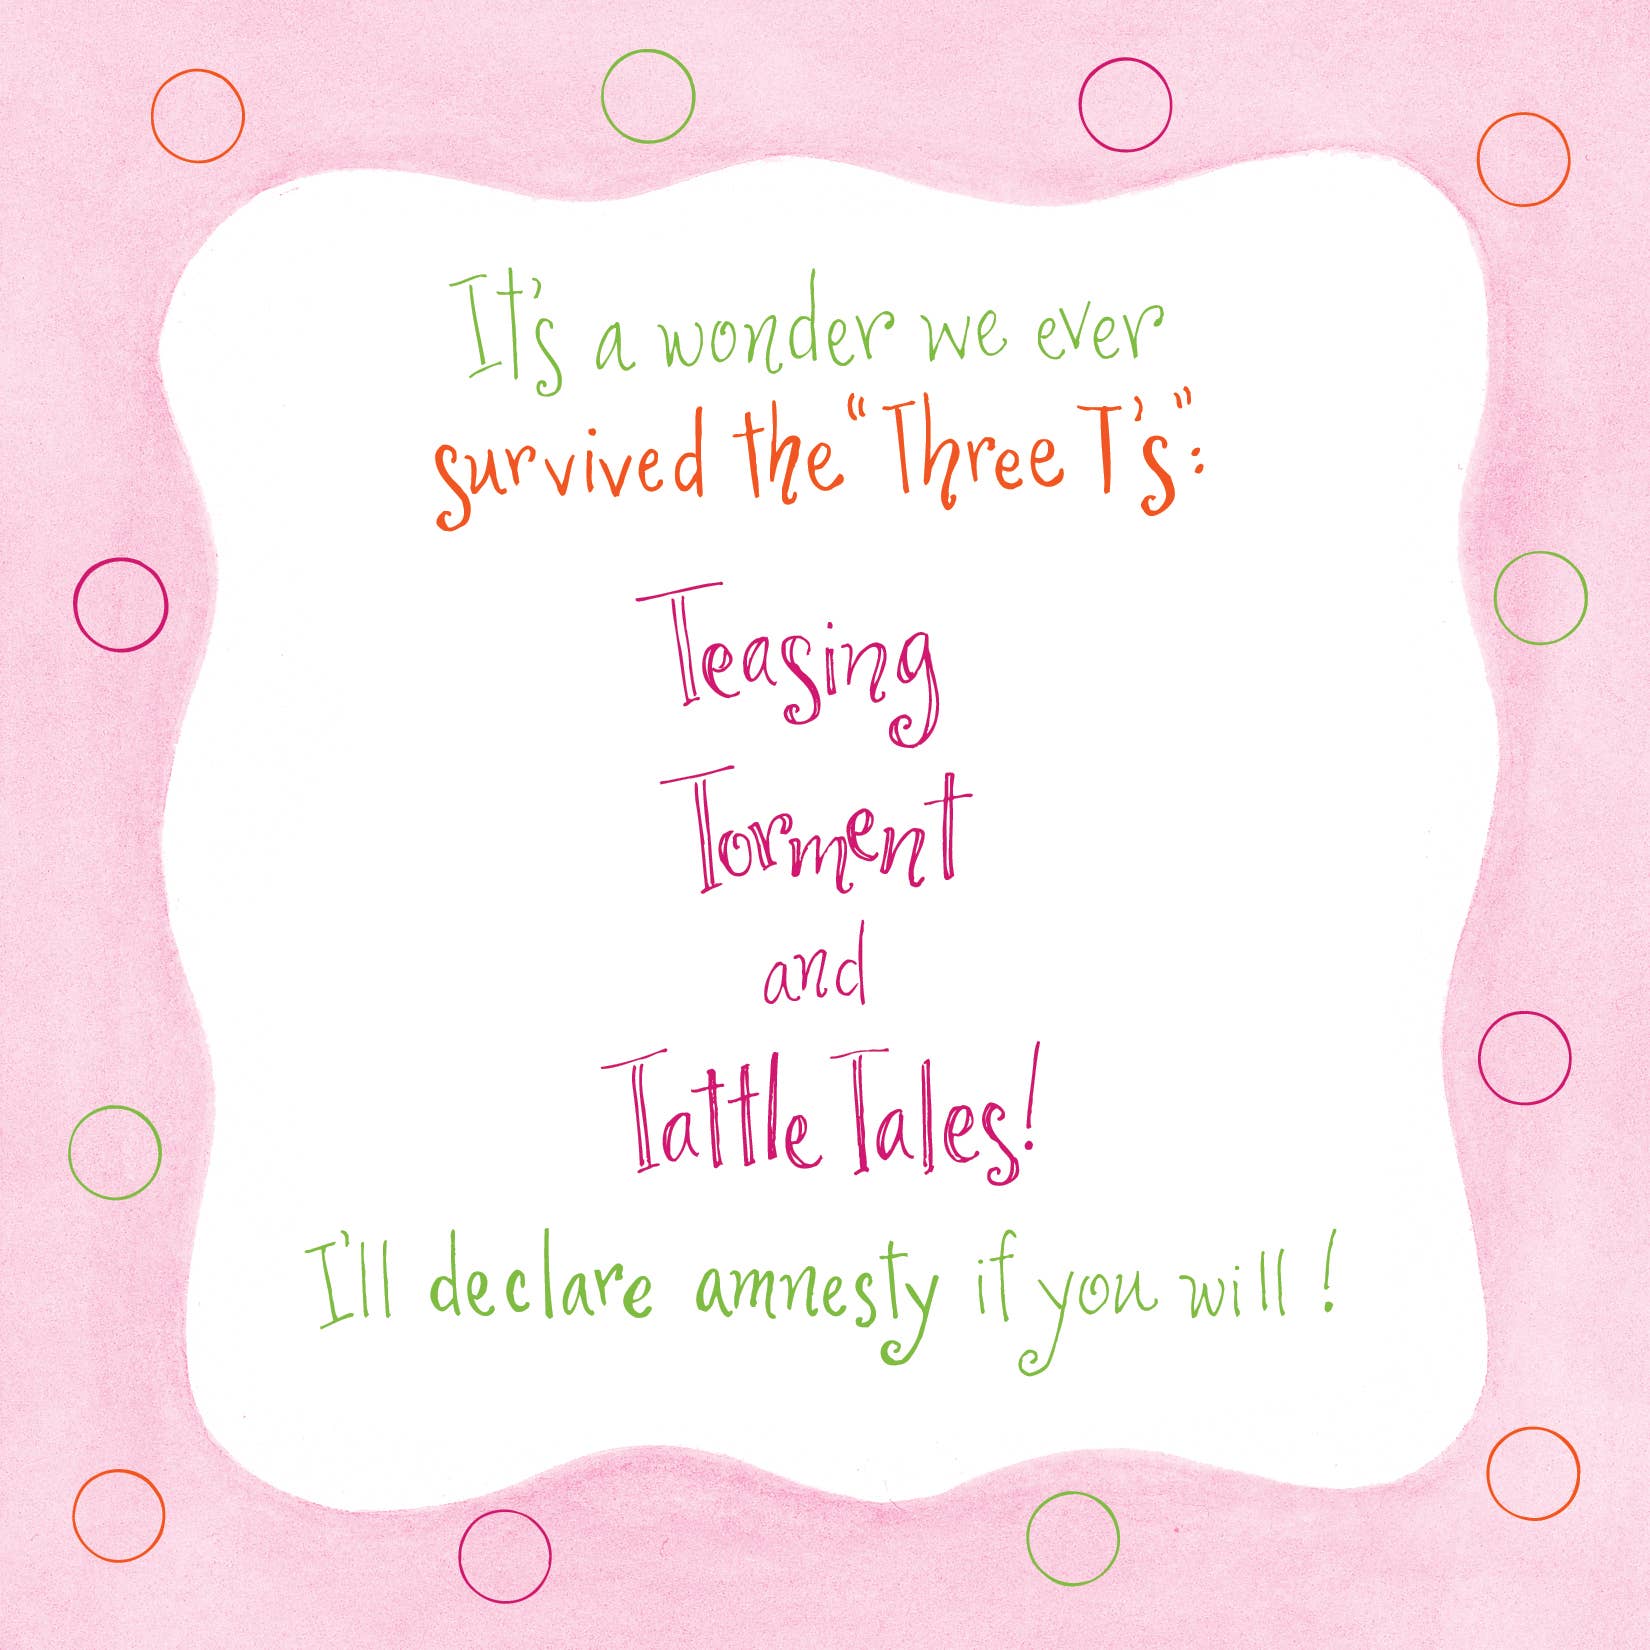 It's a wonder we ever
survived the "Three T's":
Teasing
Torment
and
Tattle Tales!
I'll declare amnesty if you will!